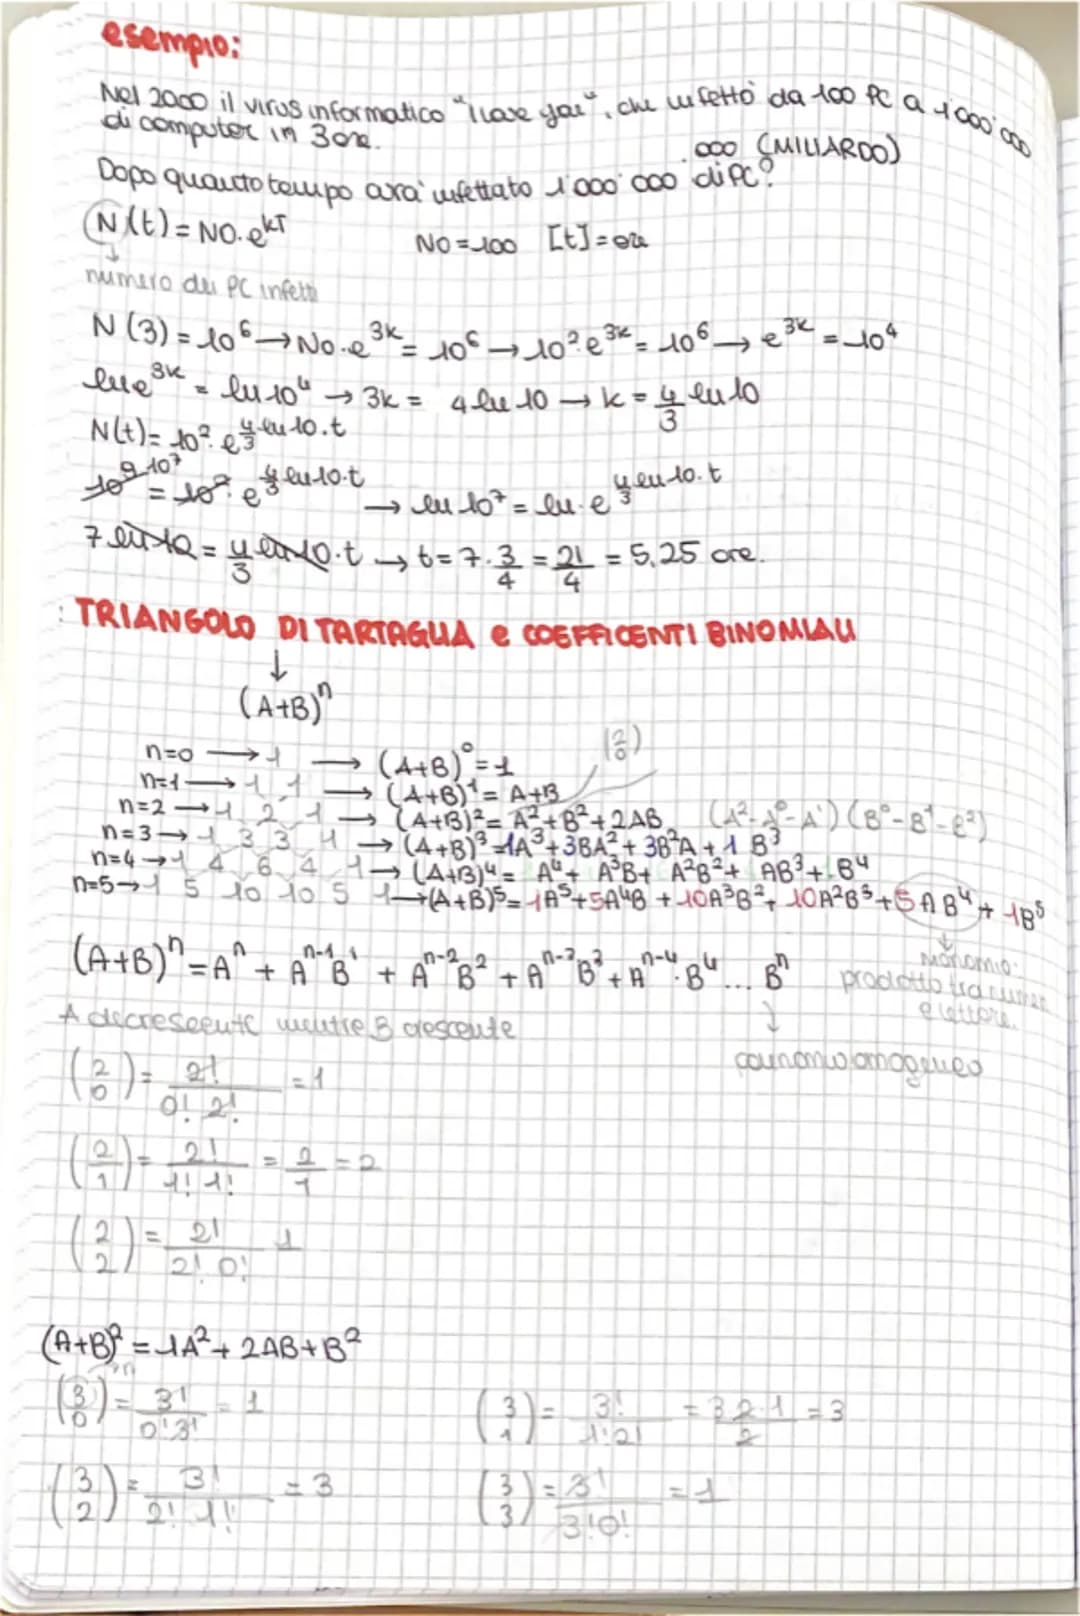 esempio:
Nel 2000 il virus informatico "I love you", che infettò da 100 PC a 1 000 000
di computer in 3 ore.
000 (MILIARDO)
Dopo quanto tempo avrà infettato 1'000'000 di PC?
N(t) = N0 · e^kT    N0 = 100  [t] = ore
↓
numero dei PC infetti
N(3) = 10^6 → N0 · e^3k = 10^6 → 10^2 e^3k = 10^6 → e^3k = 10^4
ln e^3k = ln 10^4 → 3k = 4 ln 10 → k = 4/3 ln 10
N(t) = 10^2 · e^(4/3 ln 10 · t)
10^9 10^7 = 10^2 · e^(4/3 ln 10 · t) → ln 10^7 = ln · e^(4/3 ln 10 · t)
7 ln 10 = 4/3 ln 10 · t → t = 7 · 3/4 = 21/4 = 5,25 ore.
: TRIANGOLO DI TARTAGLIA e COEFFICENTI BINOMIALI
↓
(A+B)^n
(2 0)
n=0 → 1 → (A+B)^0 = 1
n=1 → 1 1 → (A+B)^1 = A+B
n=2 → 1 2 1 → (A+B)^2 = A^2 + B^2 + 2AB (A^2 - A^0 - A^1) (B^0 - B^1 - B^2)
n=3 → 1 3 3 1 → (A+B)^3 = 1A^3 + 3BA^2 + 3B^2A + 1 B^3
n=4 → 1 4 6 4 1 → (A+B)^4 = A^4 + A^3B + A^2B^2 + AB^3 + B^4
n=5 → 1 5 10 10 5 1 → (A+B)^5 = 1A^5 + 5A^4B + 10A^3B^2 + 10A^2B^3 + 5AB^4 + 1B^5
(A+B)^n = A^n + A^n-1 B^1 + A^n-2 B^2 + A^n-3 B^3 + A^n-4 · B^4 ... B^n
monomio:
prodotto tra numeri
e lettere.
A decrescente mentre B crescente
polinomio omogeneo
(2 0) = 2!/0! 2! = 1
(2 1) = 2!/1! 1! = 2/1 = 2
(2 2) = 2!/2! 0! 1
(A+B)^2 = 1A^2 + 2AB + B^2
(3 0) = 3!/0! 3! = 1    (3 1) = 3!/1! 2! = 3 2·1/2 = 3
(3 2) = 3!/2! 1! = 3    (3 3) = 3!/3! 0! = 1